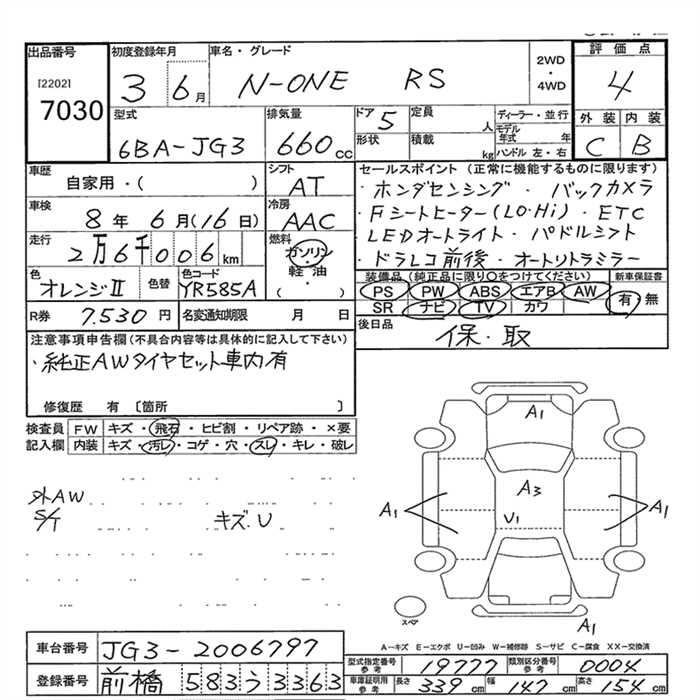 出品番号
[2202]
7030
初度登録年月
3 6月
車名・グレード
N-ONE RS
2WD
・
4WD
評価点
4
外装 内装
C B
型式
6BA-JG3
排気量
660cc
ドア 5
形状
定員 人
積載 kg
ディーラー・並行
モデル年式 年
ハンドル 左・右
車歴
自家用・( )
シフト
AT
車検
8年 6月(16日)
冷房
AAC
走行
2万6千006km
燃料
ガソリン・
軽油・
( )
色
オレンジⅡ
色替
色コード
YR585A
R券 7.530円
名変通知期限 月 日
セールスポイント (正常に機能するものに限ります)
・ホンダセンシング・ バックカメラ
・Fシートヒーター(LO・Hi)・ETC
・LEDオートライト・パドルシフト
・ドラレコ前後・オートリトラミラー
装備品(純正品に限り○をつけてください)
PS PW ABS エアB AW
SR ナビ TV カワ
新車保証書
有・無
後日品
保・取
注意事項申告欄(不具合内容等は具体的に記入して下さい)
・純正AWタイヤセット車内有
修復歴 有 〔箇所 〕
検査員記入欄
FW キズ・飛石・ヒビ割・リペア跡・×要
内装 キズ・汚レ・コゲ・穴・スレ・キレ・破レ
外AW
S/T キズ.U
A1
A3
U1
A1
A1
A1
スペア
A―キズ E―エクボ U―凹み W―補修跡 S―サビ C―腐食 XX―交換済
車台番号 JG3-2006797
登録番号 前橋 583 う 3363
型式指定番号 参考 19777
類別区分番号 参考 0004
車庫証明用 参考 長さ 339cm 幅 147cm 高さ 154cm